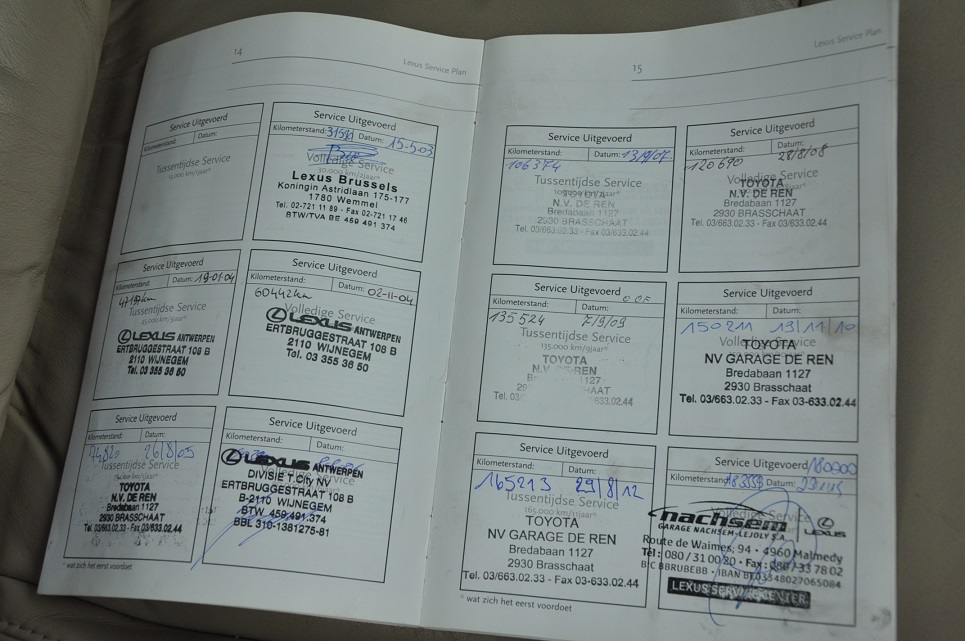 14
Lexus Service Plan
Service Uitgevoerd
Kilometerstand: Datum:
Tussentijdse Service
15.000 km/1jaar*
Service Uitgevoerd
Kilometerstand: Datum: 15-5-03
Volledige Service
30.000 km/2jaar*
Lexus Brussels
Koningin Astridlaan 175-177
1780 Wemmel
Tel. 02-721 11 89 - Fax 02-721 17 46
BTW/TVA BE 459 491 374
Service Uitgevoerd
Kilometerstand: Datum: 19-01-04
Tussentijdse Service
45.000 km/3jaar*
LEXUS ANTWERPEN
ERTBRUGGESTRAAT 108 B
2110 WIJNEGEM
Tel. 03 355 36 50
Service Uitgevoerd
Kilometerstand: Datum:
60442km 02-11-04
Volledige Service
LEXUS ANTWERPEN
ERTBRUGGESTRAAT 108 B
2110 WIJNEGEM
Tel. 03 355 36 50
Service Uitgevoerd
Kilometerstand: Datum:
74820 26/8/05
Tussentijdse Service
TOYOTA
N.V. DE REN
Bredabaan 1127
2930 BRASSCHAAT
Tel. 03/663.02.33 - Fax 03/633.02.44
Service Uitgevoerd
Kilometerstand: Datum:
Volledige Service
LEXUS ANTWERPEN
DIVISIE T.City NV
ERTBRUGGESTRAAT 108 B
B-2110 WIJNEGEM
BTW 459.491.374
BBL 310-1381275-81
* wat zich het eerst voordoet
15
Lexus Service Plan
Service Uitgevoerd
Kilometerstand: Datum: 13/9/07
106374
Tussentijdse Service
TOYOTA
N.V. DE REN
Bredabaan 1127
2930 BRASSCHAAT
Tel. 03/663.02.33 - Fax 03/633.02.44
Service Uitgevoerd
Kilometerstand: Datum:
120690 28/8/08
Volledige Service
TOYOTA
N.V. DE REN
Bredabaan 1127
2930 BRASSCHAAT
Tel. 03/663.02.33 - Fax 03/633.02.44
Service Uitgevoerd
Kilometerstand: Datum:
135524 7/9/09
Tussentijdse Service
135.000 km/9jaar*
TOYOTA
N.V. DE REN
Bredabaan 1127
2930 BRASSCHAAT
Service Uitgevoerd
Kilometerstand: Datum:
150211 13/11/10
Volledige Service
TOYOTA
NV GARAGE DE REN
Bredabaan 1127
2930 Brasschaat
Tel. 03/663.02.33 - Fax 03-633.02.44
Service Uitgevoerd
Kilometerstand: Datum:
165213 29/8/12
Tussentijdse Service
165.000 km/11jaar*
TOYOTA
NV GARAGE DE REN
Bredabaan 1127
2930 Brasschaat
Tel. 03/663.02.33 - Fax 03-633.02.44
Service Uitgevoerd 180000
Kilometerstand: Datum:
Volledige Service
nachsem LEXUS
GARAGE NACHSEM-LEJOLY S.A.
Route de Waimes, 94 • 4960 Malmedy
Tél : 080 / 31 00 20 • Fax : 080 / 33 78 02
LEXUS SERVICE CENTER
* wat zich het eerst voordoet